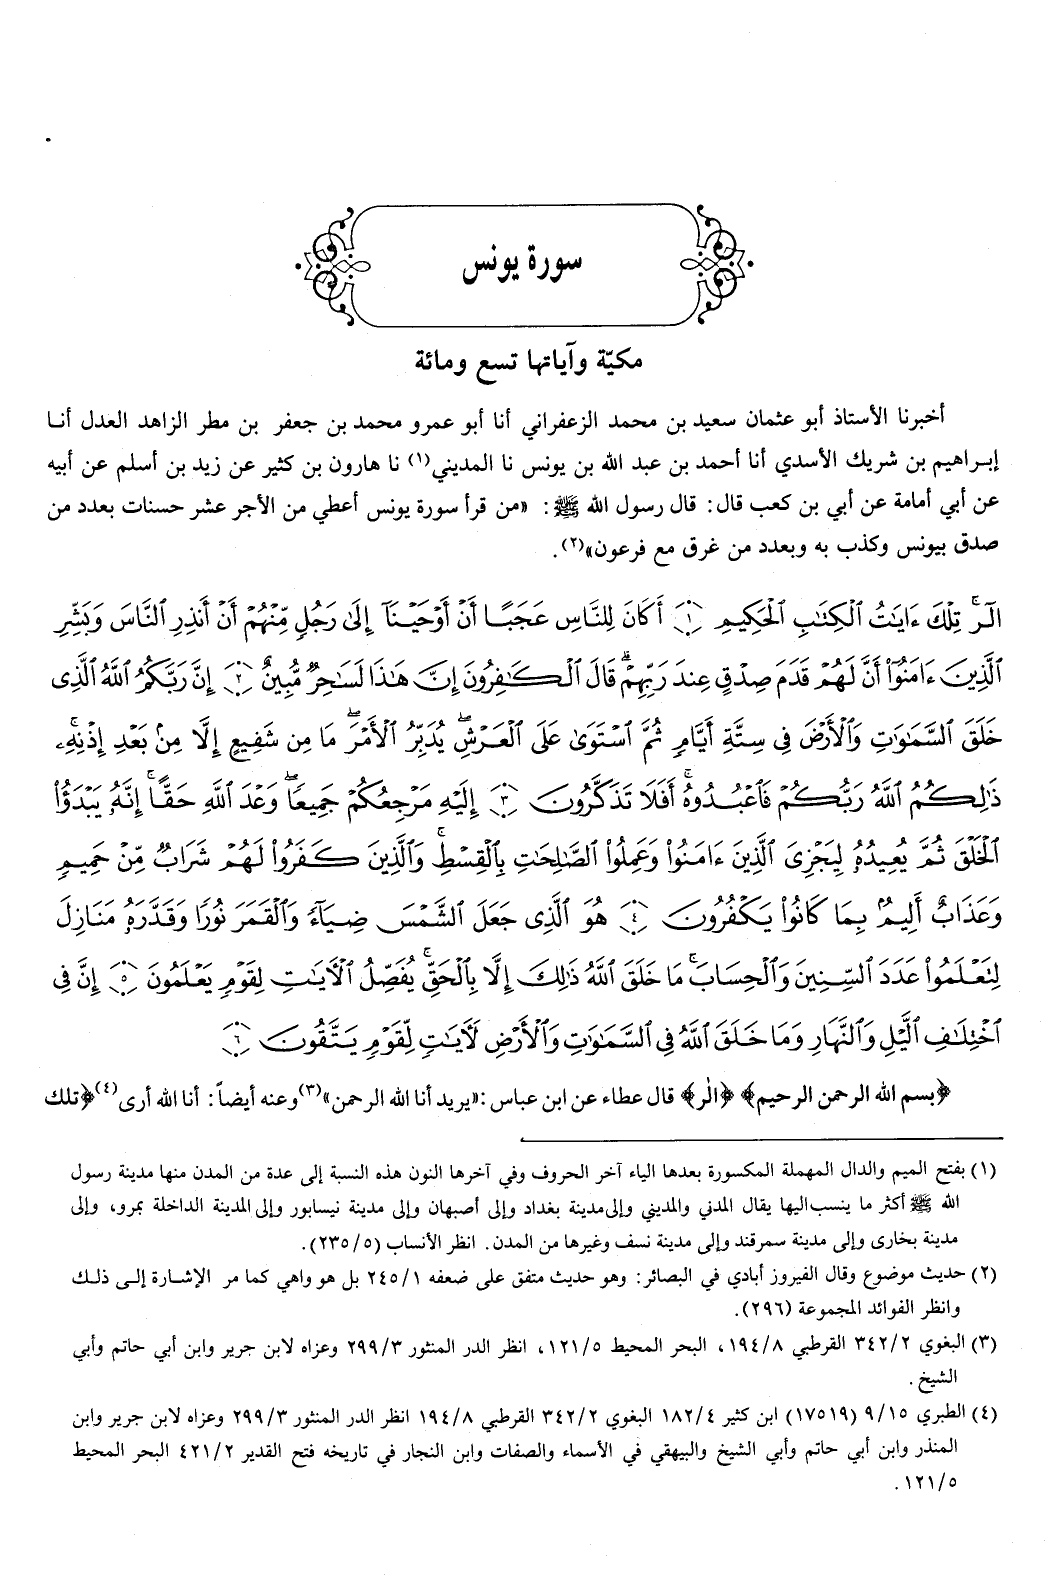 سورة يونس
مكيّة وآياتها تسع ومائة
أخبرنا الأستاذ أبو عثمان سعيد بن محمد الزعفراني أنا أبو عمرو محمد بن جعفر بن مطر الزاهد العدل أنا
إبراهيم بن شريك الأسدي أنا أحمد بن عبد الله بن يونس نا المديني(١) نا هارون بن كثير عن زيد بن أسلم عن أبيه
عن أبي أمامة عن أبي بن كعب قال: قال رسول الله ﷺ: «من قرأ سورة يونس أعطي من الأجر عشر حسنات بعدد من
صدق بيونس وكذب به وبعدد من غرق مع فرعون»(٢).
الٓرۚ تِلْكَ ءَايَٰتُ ٱلْكِتَٰبِ ٱلْحَكِيمِ ﴿١﴾ أَكَانَ لِلنَّاسِ عَجَبًا أَنْ أَوْحَيْنَآ إِلَىٰ رَجُلٍ مِّنْهُمْ أَنْ أَنذِرِ ٱلنَّاسَ وَبَشِّرِ
ٱلَّذِينَ ءَامَنُوٓا۟ أَنَّ لَهُمْ قَدَمَ صِدْقٍ عِندَ رَبِّهِمْۗ قَالَ ٱلْكَٰفِرُونَ إِنَّ هَٰذَا لَسَٰحِرٌ مُّبِينٌ ﴿٢﴾ إِنَّ رَبَّكُمُ ٱللَّهُ ٱلَّذِى
خَلَقَ ٱلسَّمَٰوَٰتِ وَٱلْأَرْضَ فِى سِتَّةِ أَيَّامٍ ثُمَّ ٱسْتَوَىٰ عَلَى ٱلْعَرْشِۖ يُدَبِّرُ ٱلْأَمْرَۖ مَا مِن شَفِيعٍ إِلَّا مِنۢ بَعْدِ إِذْنِهِۦۚ
ذَٰلِكُمُ ٱللَّهُ رَبُّكُمْ فَٱعْبُدُوهُۚ أَفَلَا تَذَكَّرُونَ ﴿٣﴾ إِلَيْهِ مَرْجِعُكُمْ جَمِيعًاۖ وَعْدَ ٱللَّهِ حَقًّاۚ إِنَّهُۥ يَبْدَؤُا۟
ٱلْخَلْقَ ثُمَّ يُعِيدُهُۥ لِيَجْزِىَ ٱلَّذِينَ ءَامَنُوا۟ وَعَمِلُوا۟ ٱلصَّٰلِحَٰتِ بِٱلْقِسْطِۚ وَٱلَّذِينَ كَفَرُوا۟ لَهُمْ شَرَابٌ مِّنْ حَمِيمٍ
وَعَذَابٌ أَلِيمٌۢ بِمَا كَانُوا۟ يَكْفُرُونَ ﴿٤﴾ هُوَ ٱلَّذِى جَعَلَ ٱلشَّمْسَ ضِيَآءً وَٱلْقَمَرَ نُورًا وَقَدَّرَهُۥ مَنَازِلَ
لِتَعْلَمُوا۟ عَدَدَ ٱلسِّنِينَ وَٱلْحِسَابَۚ مَا خَلَقَ ٱللَّهُ ذَٰلِكَ إِلَّا بِٱلْحَقِّۚ يُفَصِّلُ ٱلْءَايَٰتِ لِقَوْمٍ يَعْلَمُونَ ﴿٥﴾ إِنَّ فِى
ٱخْتِلَٰفِ ٱلَّيْلِ وَٱلنَّهَارِ وَمَا خَلَقَ ٱللَّهُ فِى ٱلسَّمَٰوَٰتِ وَٱلْأَرْضِ لَءَايَٰتٍ لِّقَوْمٍ يَتَّقُونَ ﴿٦﴾
﴿بسم الله الرحمن الرحيم﴾ ﴿الٓر﴾ قال عطاء عن ابن عباس :«يريد أنا الله الرحمن»(٣)وعنه أيضاً: أنا الله أرى(٤)﴿تلك
(١) بفتح الميم والدال المهملة المكسورة بعدها الياء آخر الحروف وفي آخرها النون هذه النسبة إلى عدة من المدن منها مدينة رسول
الله ﷺ أكثر ما ينسب اليها يقال المدني والمديني وإلى مدينة بغداد وإلى أصبهان وإلى مدينة نيسابور وإلى المدينة الداخلة بمرو، وإلى
مدينة بخارى وإلى مدينة سمرقند وإلى مدينة نسف وغيرها من المدن. انظر الأنساب (٢٣٥/٥).
(٢) حديث موضوع وقال الفيروز أبادي في البصائر: وهو حديث متفق على ضعفه ٢٤٥/١ بل هو واهي كما مر الإشارة إلى ذلك
وانظر الفوائد المجموعة (٢٩٦).
(٣) البغوي ٣٤٢/٢ القرطبي ١٩٤/٨، البحر المحيط ١٢١/٥، انظر الدر المنثور ٢٩٩/٣ وعزاه لابن جرير وابن أبي حاتم وأبي
الشيخ.
(٤) الطبري ٩/١٥ (١٧٥١٩) ابن كثير ١٨٢/٤ البغوي ٣٤٢/٢ القرطبي ١٩٤/٨ انظر الدر المنثور ٢٩٩/٣ وعزاه لابن جرير وابن
المنذر وابن أبي حاتم وأبي الشيخ والبيهقي في الأسماء والصفات وابن النجار في تاريخه فتح القدير ٤٢١/٢ البحر المحيط
١٢١/٥.